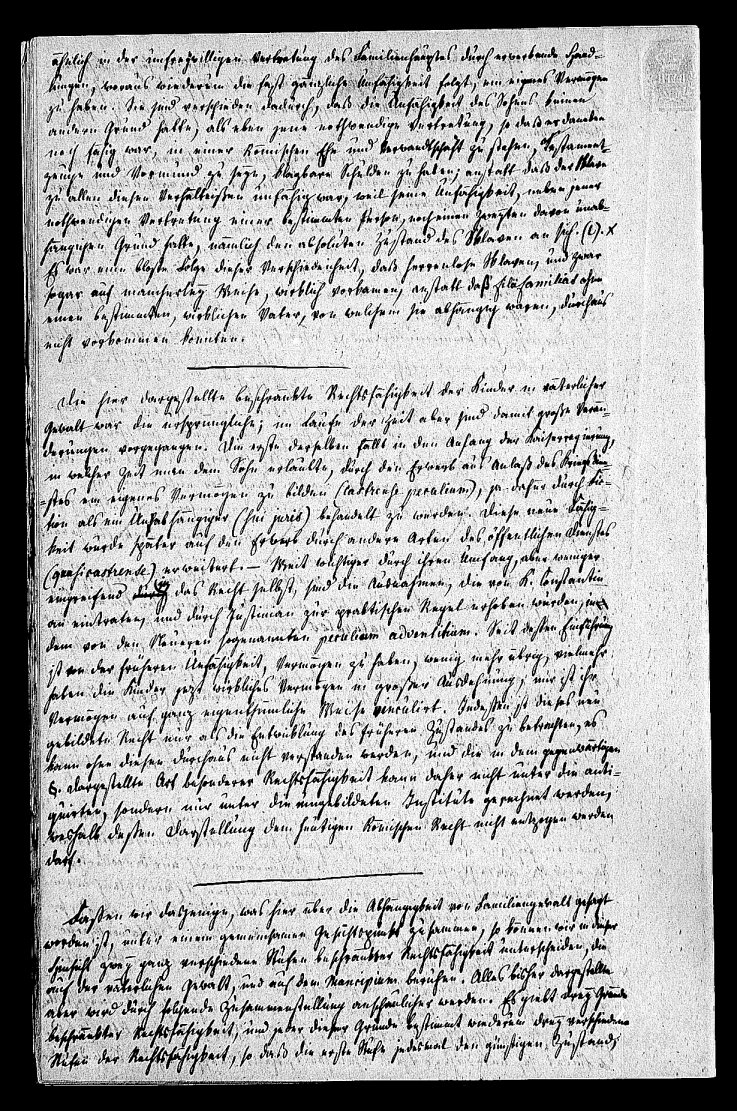 ähnlich in der unfreywilligen Vertretung des Familienhauptes durch erwerbende Hand-
lungen, woraus wiederum die fast gänzliche Unfähigkeit folgt, ein eigenes Vermögen
zu haben. Sie sind verschieden dadurch, daß die Unfähigkeit des Sohens keinen
andern Grund hatte, als eben jene nothwendige Vertretung, so daß er daneben
noch fähig war, in einer Römischen Ehe und Verwandtschaft zu stehen, Testaments-
zeuge und Vormund zu seyn, klagbare Schulden zu haben; anstatt daß der Sklave
zu allen diesen Verhältnissen unfähig war, weil seine Unfähigkeit, neben jener
nothwendigen Vertretung einer bestimmten Person, noch einen zweyten davon unab-
hängigen Grund hatte, nämlich den absoluten Zustand des Sklaven an sich (t). x
Es war eine bloße Folge dieser Verschiedenheit, daß herrenlose Sklaven, und zwar
sogar auf mancherley Weise, wirklich vorkamen, anstatt daß filiifamilias ohne
einen bestimmten, wirklichen Vater, von welchem sie abhängig waren, durchaus
nicht vorkommen konnten.
Die hier dargestellte beschränkte Rechtsfähigkeit der Kinder in väterlicher
Gewalt war die ursprüngliche; im Laufe der Zeit aber sind damit große Verän-
derungen vorgegangen. Die erste derselben fällt in den Anfang der Kaiserregierung,
in welcher Zeit man dem Sohn erlaubte, durch den Erwerb aus Anlaß des Kriegsdien-
stes ein eigenes Vermögen zu bilden (castrense peculium), ja dafür durch Fic-
tion als ein Unabhängiger (sui juris) behandelt zu werden. Diese neue Fähig-
keit wurde später auf den Erwerb durch andere Arten des öffentlichen Dienstes
(quasicastrense) erweitert. – Weit wichtiger durch ihren Umfang, aber weniger
eingreifend in das Recht selbst, sind die Ausnahmen, die von K. Constantin
an eintraten, und durch Justinian zur praktischen Regel erhoben wurden, in
dem von den Neueren sogenannten peculium adventitium. Seit dessen Einführung
ist von der früheren Unfähigkeit, Vermögen zu haben, wenig mehr übrig, vielmehr
haben die Kinder jezt wirkliches Vermögen in großer Ausdehnung, nur ist ihr
Vermögen auf ganz eigenthümliche Weise Indessen ist dieses neu
gebildete Recht nur als die Entwiklung des früheren Zustandes zu betrachten, es
kann ohne diesen durchaus nicht verstanden werden, und die in dem gegenwärtigen
§. dargestellte Art besonderer Rechtsfähigkeit kann daher nicht unter die anti-
quirten, sondern nur unter die umgebildeten Institute gerechnet werden,
weshalb dessen Darstellung dem heutigen Römischen Recht nicht entzogen werden
darf.
Fassen wir dasjenige, was hier über die Abhängigkeit von Familiengewalt gesagt
worden ist, unter einem gemeinsamen Gesichtspunkt zusammen, so können wir in dieser
Hinsicht zwey ganz verschiedene Stufen beschränkter Rechtsfähigkeit unterscheiden, die
auf der väterlichen Gewalt, und auf dem Mancipium beruhen. Alles bisher dargestellte
aber wird durch folgende Zusammenstellung anschaulicher werden. Es giebt drey Gründe
beschränkter Rechtsfähigkeit, und jeder dieser Gründe bestimmt wiederum drey verschiedene
Stufen der Rechtsfähigkeit, so daß die erste Stufe jedesmal den günstigen Zustand,